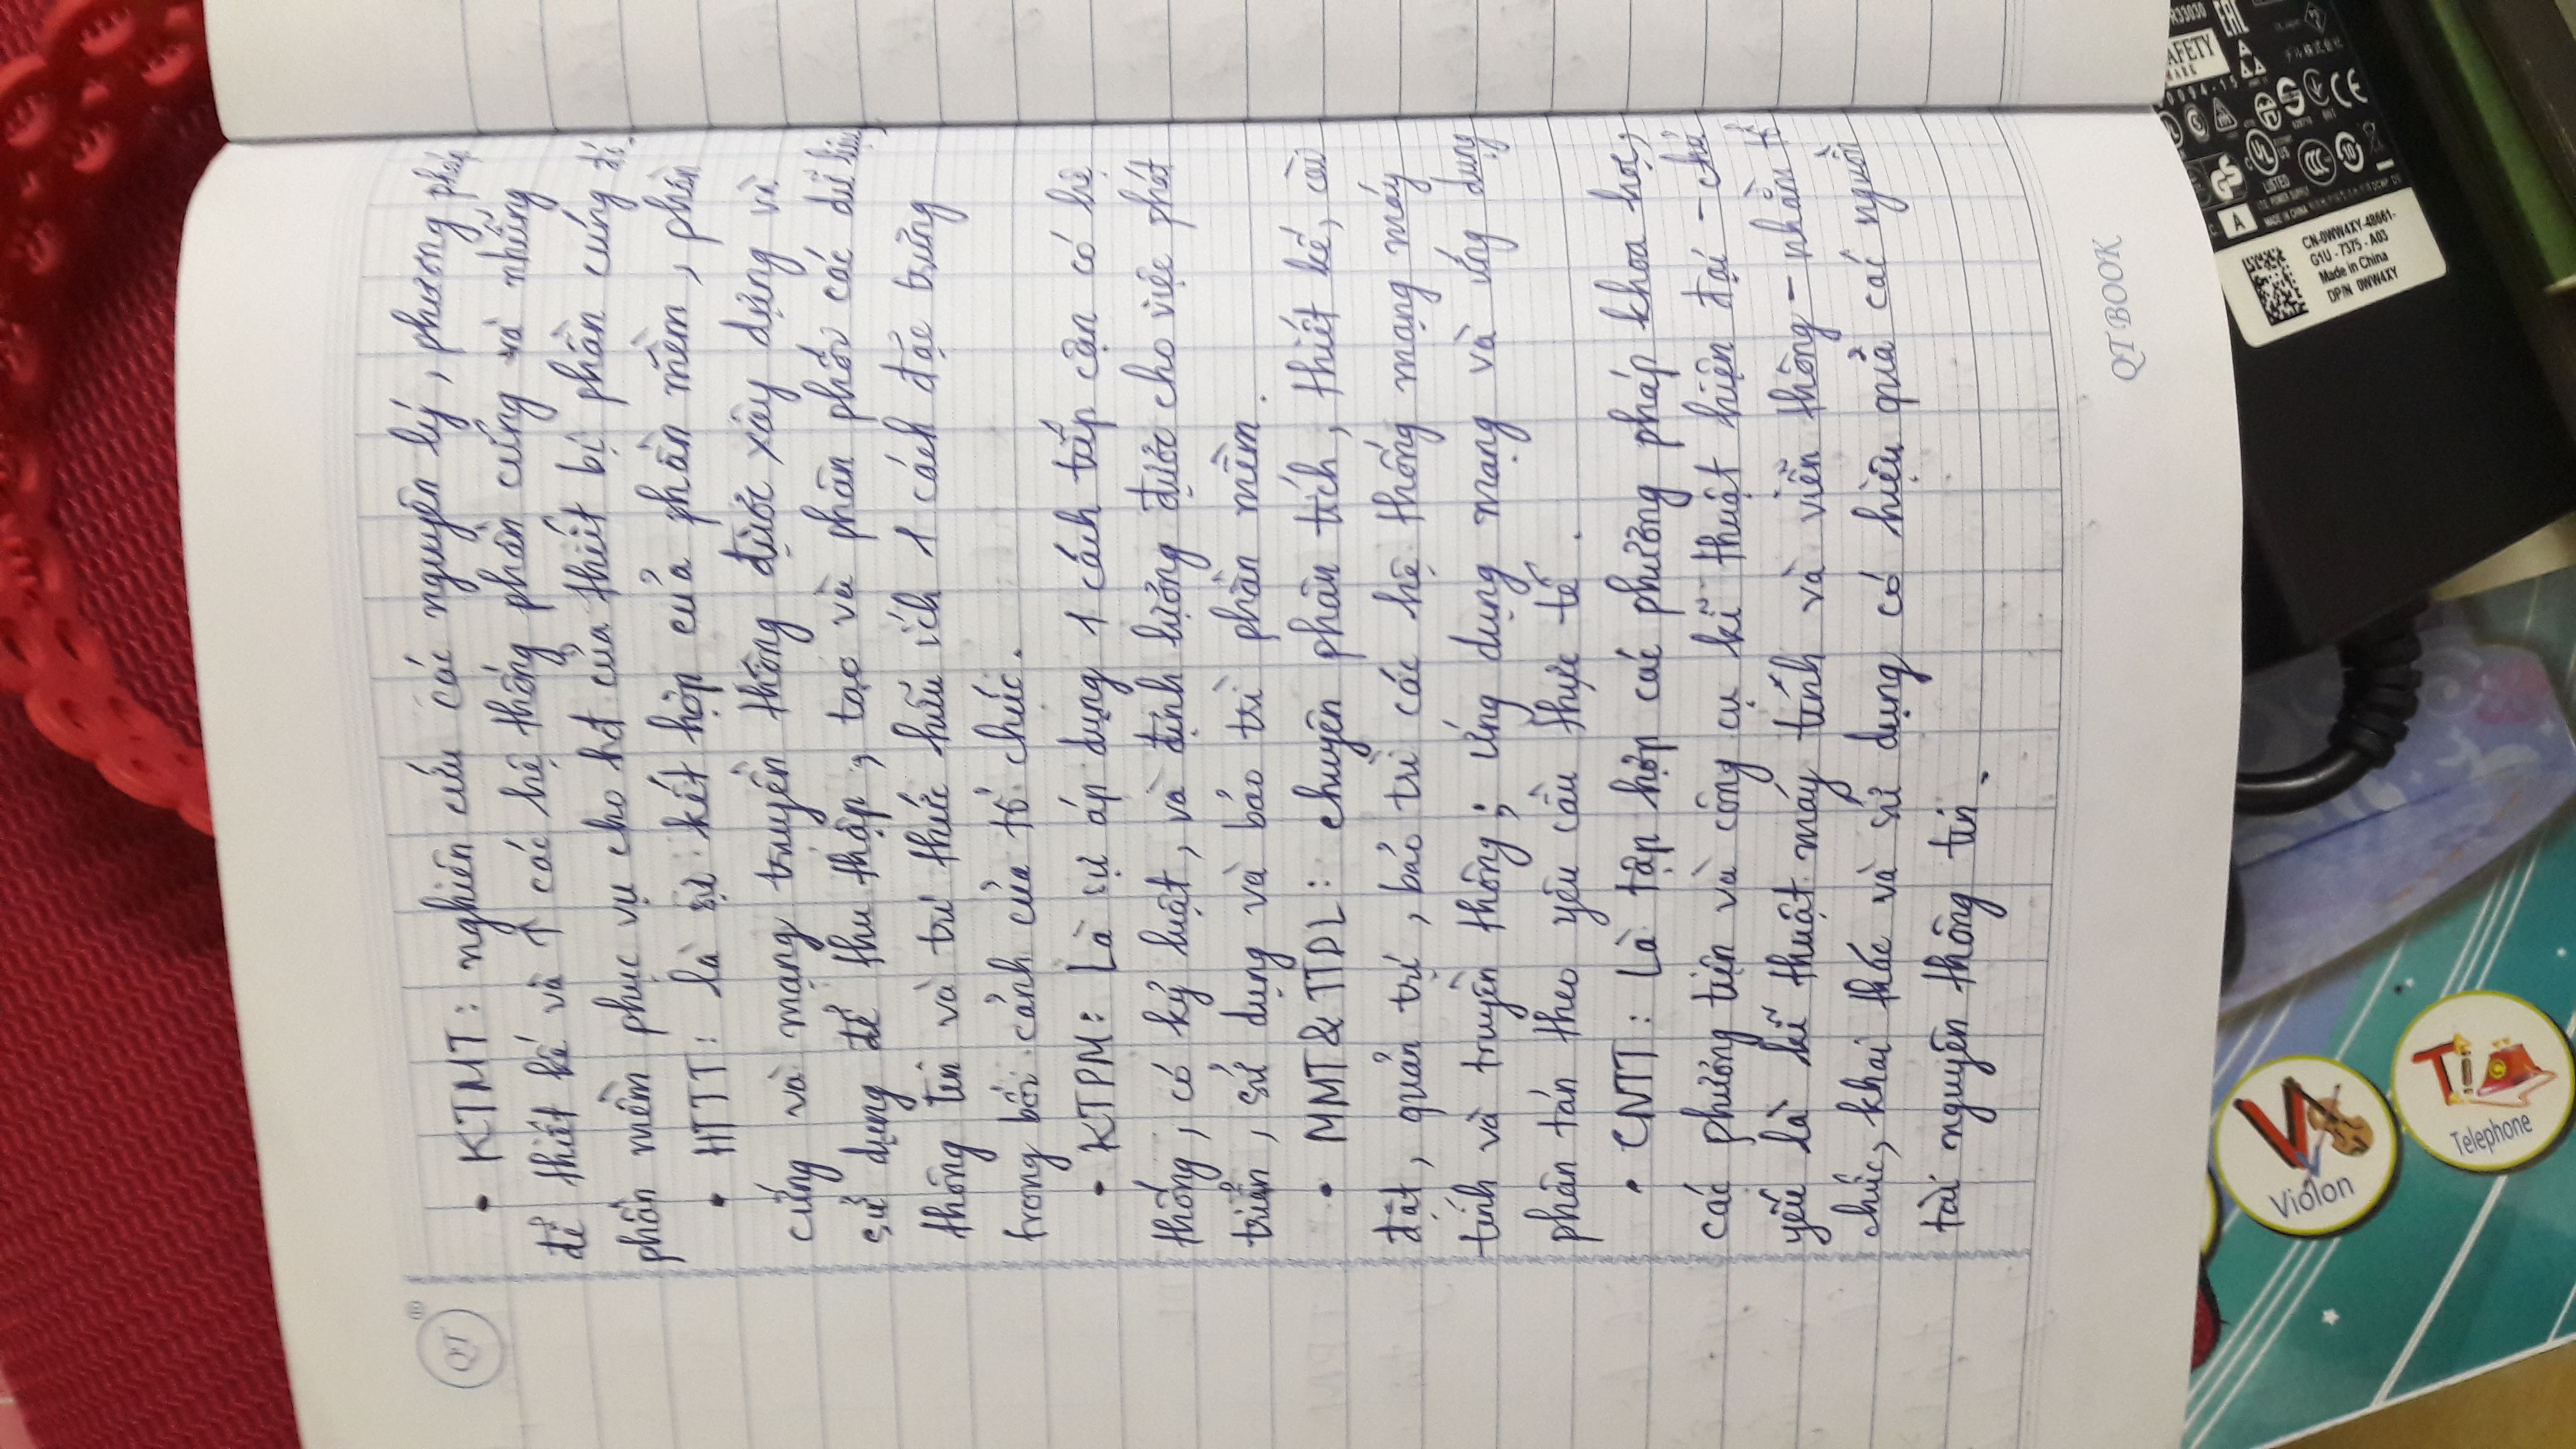 QT
• KTMT: nghiên cứu các nguyên lý, phương pháp
để thiết kế và ↑ các hệ thống phần cứng và những
phần mềm phục vụ cho hđ của thiết bị phần cứng đó.
• HTTT: là sự kết hợp của phần mềm, phần
cứng và mạng truyền thông được xây dựng và
sử dụng để thu thập, tạo và phân phối các dữ liệu,
thông tin và tri thức hữu ích 1 cách đặc trưng
trong bối cảnh của tổ chức.
• KTPM: Là sự áp dụng 1 cách tiếp cận có hệ
thống, có kỷ luật, và định lượng được cho việc phát
triển, sử dụng và bảo trì phần mềm.
• MMT & TTDL: chuyên phân tích, thiết kế, cài
đặt, quản trị, bảo trì các hệ thống mạng máy
tính và truyền thông; ứng dụng mạng và ứng dụng
phân tán theo yêu cầu thực tế.
• CNTT: Là tập hợp các phương pháp khoa học,
các phương tiện và công cụ kĩ thuật hiện đại - chủ
yếu là kĩ thuật máy tính và viễn thông - nhằm tổ
chức, khai thác và sử dụng có hiệu quả các nguồn
tài nguyên thông tin.
QT BOOK
Violon
Telephone
SAFETY
CN-0WW4XY-48661-
G1U - 7375 - A03
Made in China
DP/N 0WW4XY